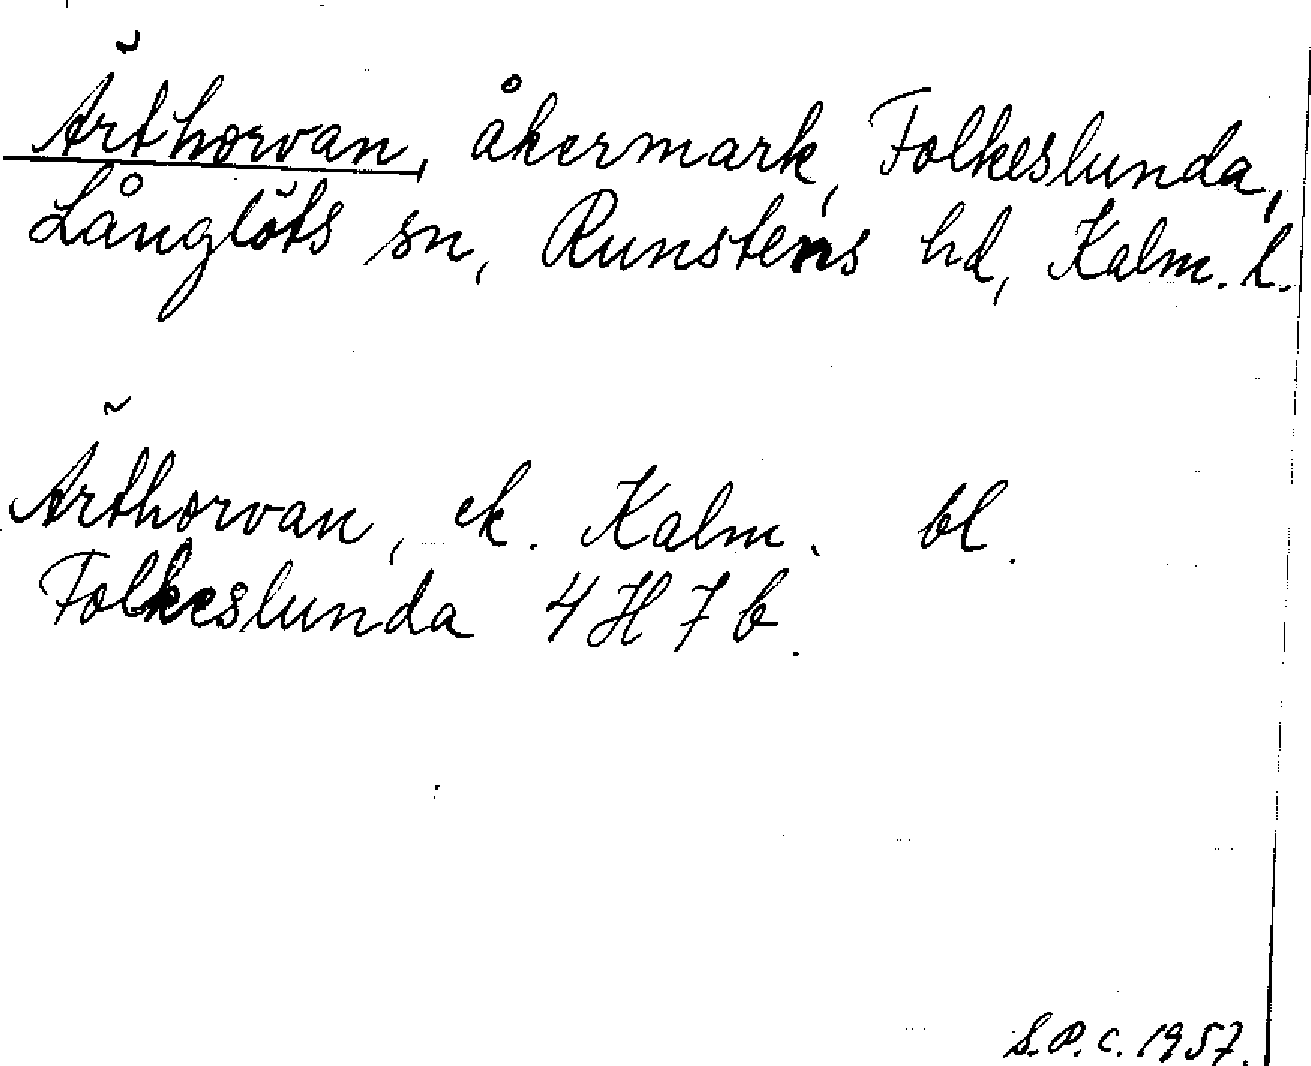 Ärthorvan, åkermark, Folkeslunda,
Långlöts sn, Runstens hd, Kalm. l.
Ärthorvan, ek. Kalm. bl.
Folkeslunda 4 H 7 b.
S.P.C. 1957.